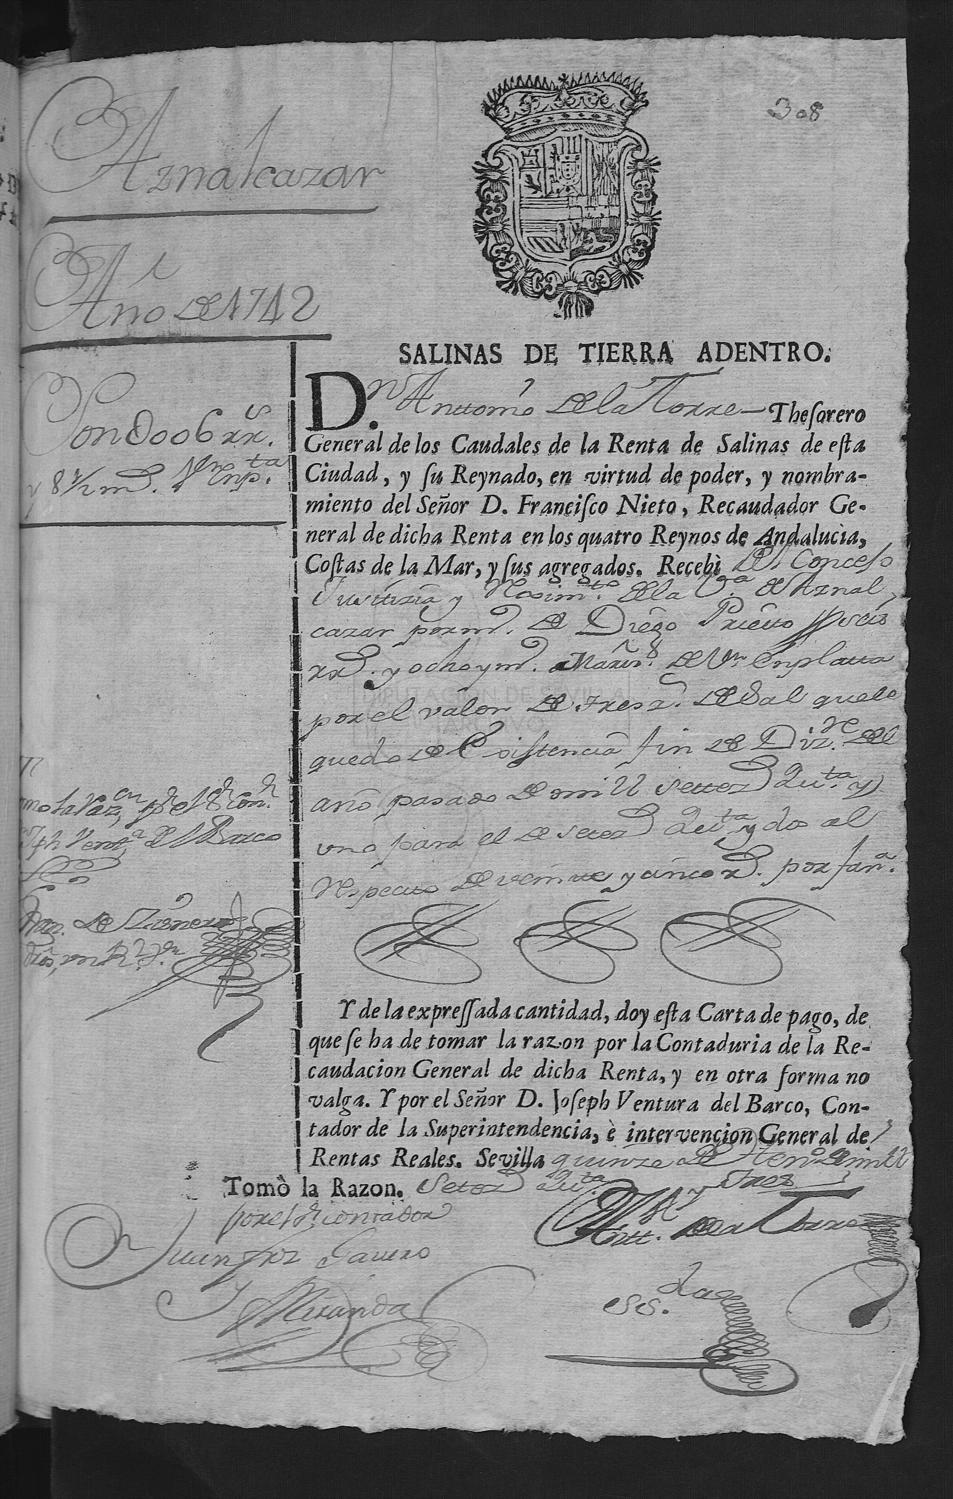 308
Aznalcazar
Año de 1742
SALINAS DE TIERRA ADENTRO.
D.n Anttonio de la Torre — Thesorero
General de los Caudales de la Renta de Salinas de esta
Ciudad, y su Reynado, en virtud de poder, y nombra-
miento del Señor D. Francisco Nieto, Recaudador Ge-
neral de dicha Renta en los quatro Reynos de Andalucia,
Costas de la Mar, y sus agregados. Recebi del Concejo
Justizia y Reximto. de la Va. de Aznal
cazar por m. de Diego Prieto seis
rrs. y ocho y m. Marvs. de Vn. en platta
por el valor de tres de Sal que le
quedo de Existencia fin de Dizre. del
año pasado de mill settezs. quta. y
uno para el de setezs. quta. y dos al
respecto de veinte y cinco rs. por fana.
Y de la expressada cantidad, doy esta Carta de pago, de
que se ha de tomar la razon por la Contaduria de la Re-
caudacion General de dicha Renta, y en otra forma no
valga. Y por el Señor D. Joseph Ventura del Barco, Con-
tador de la Superintendencia, è intervencion General de
Rentas Reales. Sevilla quinze de Heno. de mill
Tomò la Razon. setezs. quta. y tres
por el Sr. contador
Antt. de la Torre
Juan frz Tavero
Y Miranda